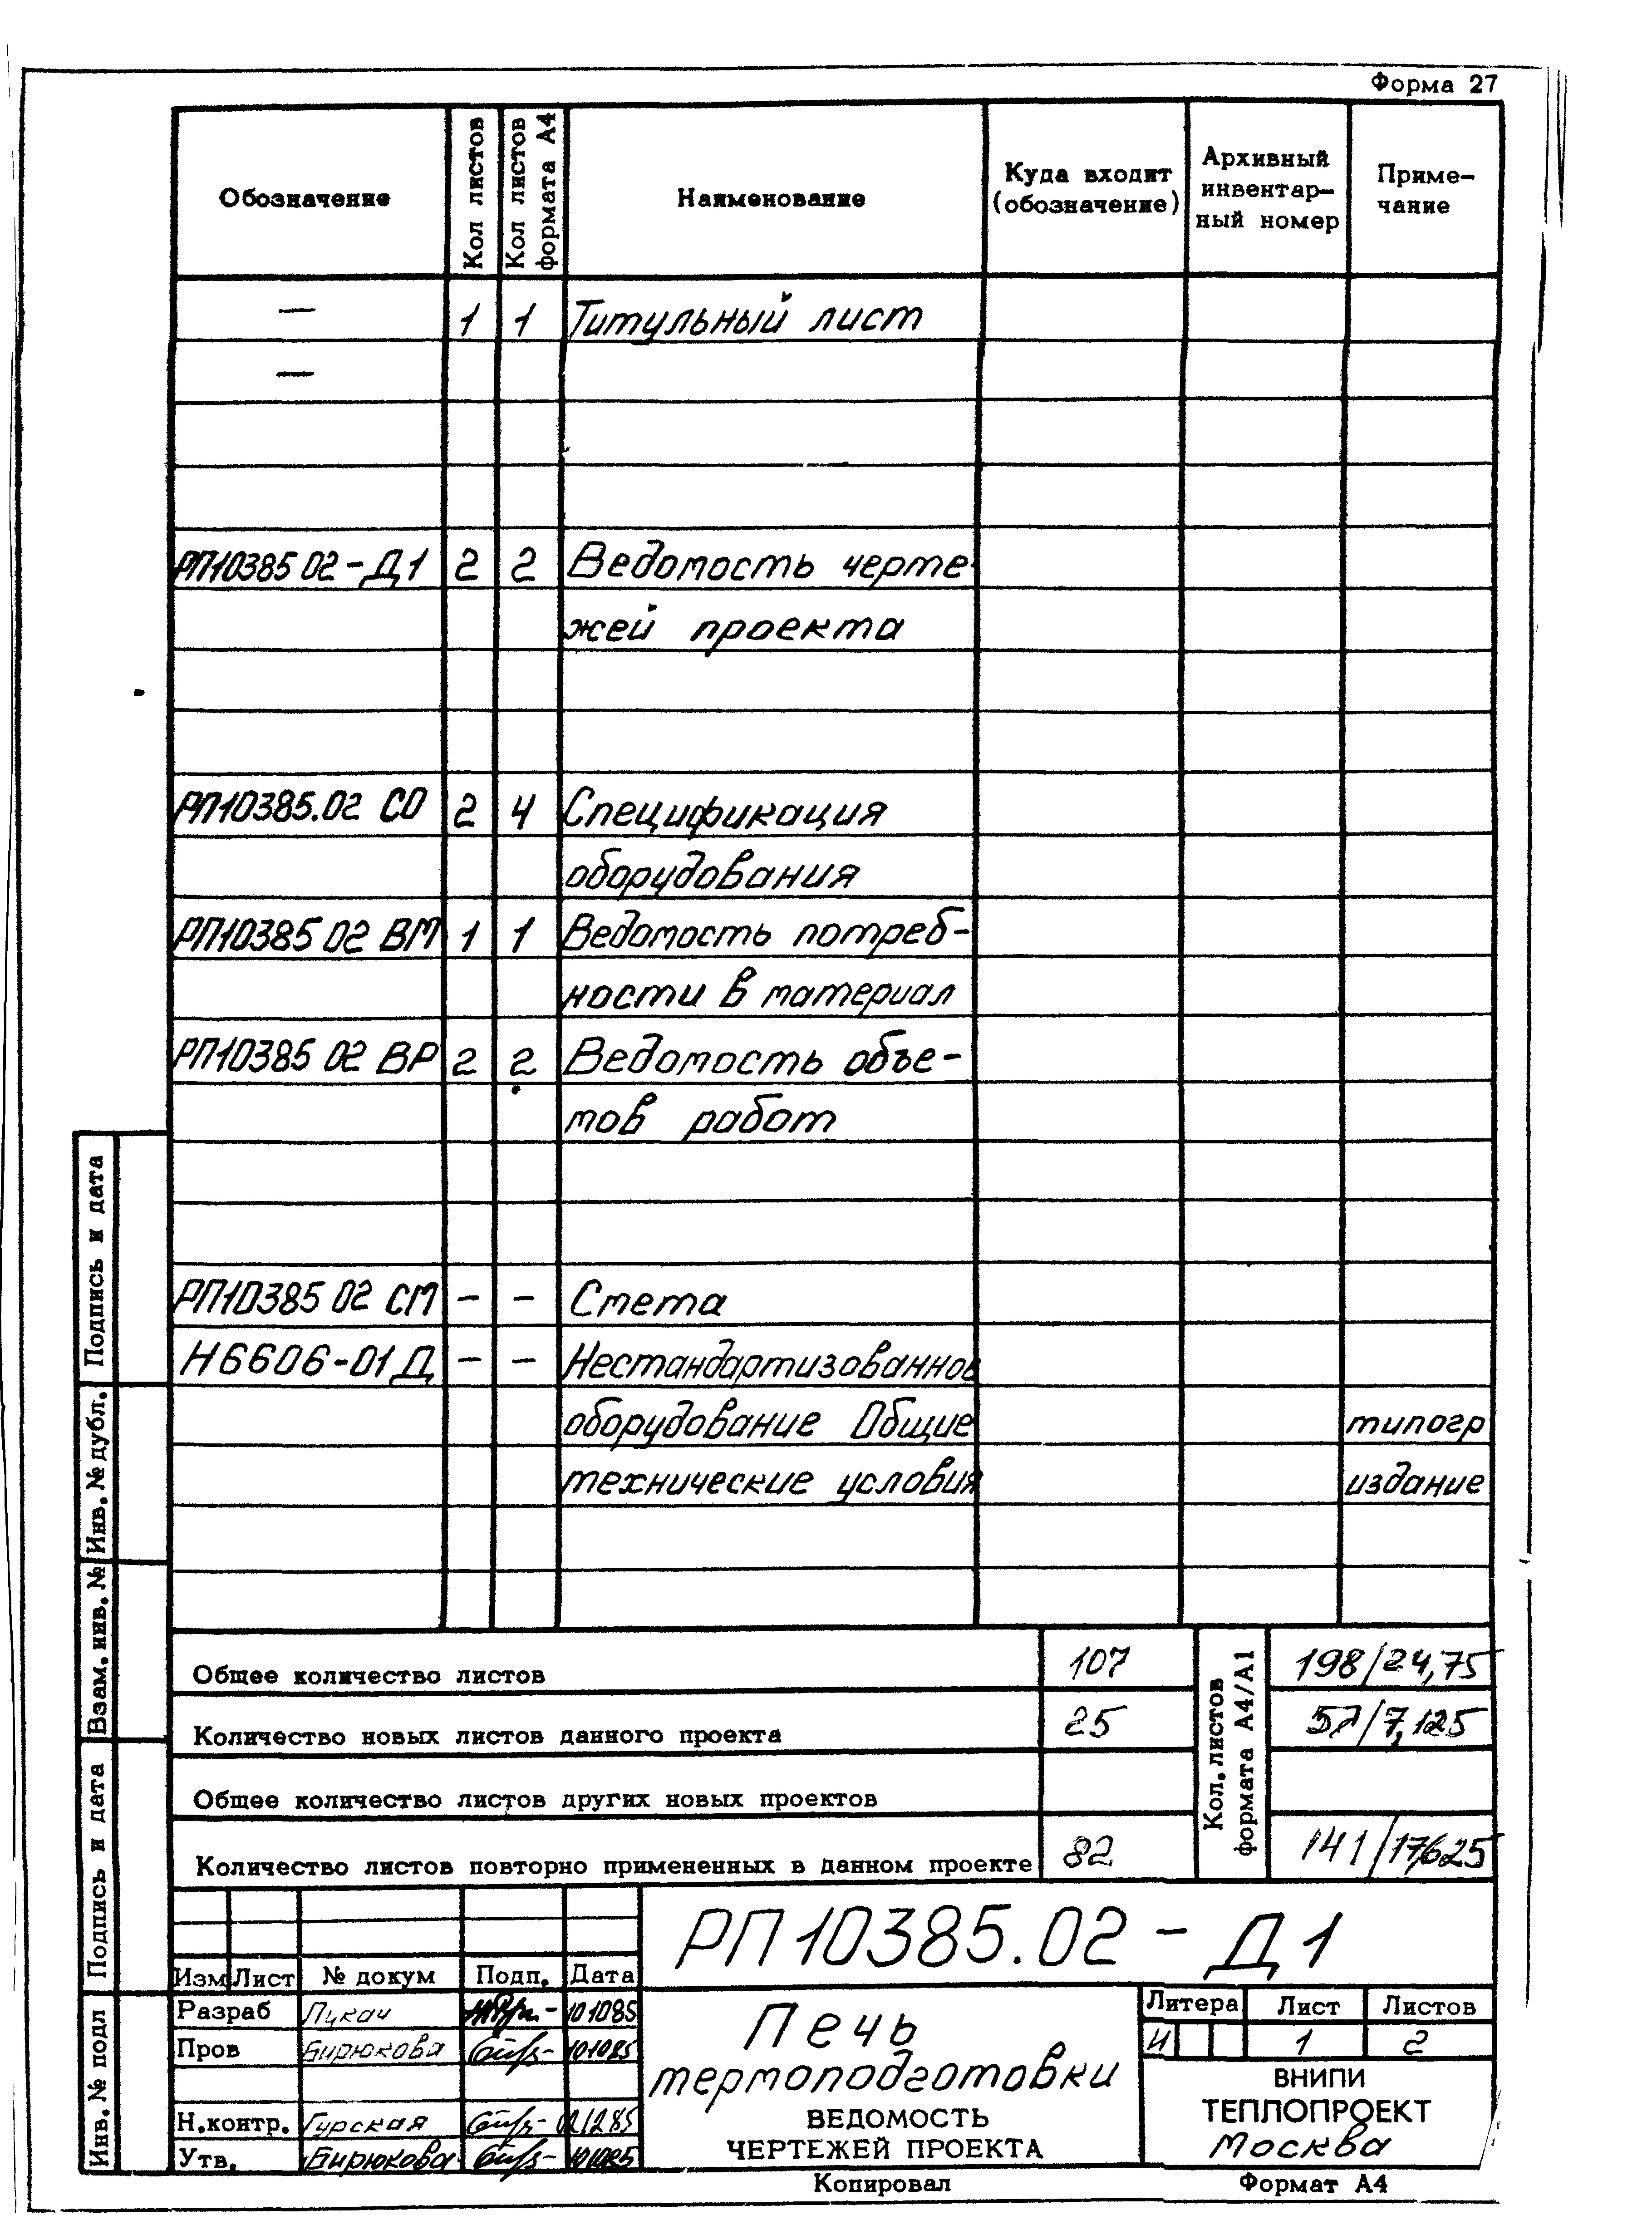 Форма 27
Обозначение
Кол листов
Кол листов
формата А4
Наименование
Куда входит
(обозначение)
Архивный
инвентар-
ный номер
Приме-
чание
— 1 1 Титульный лист
—
РП10385 02-Д1 2 2 Ведомость черте-
жей проекта
РП10385.02 СО 2 4 Спецификация
оборудования
РП10385 02 ВМ 1 1 Ведомость потреб-
ности в материал
РП10385 02 ВР 2 2 Ведомость объе-
мов работ
РП10385 02 СМ - - Смета
Н6606-01Д - - Нестандартизованное
оборудование Общие типогр
технические условия издание
Общее количество листов 107 198/24,75
Количество новых листов данного проекта 25 57/7,125
Общее количество листов других новых проектов
Количество листов повторно примененных в данном проекте 82 141/17,625
Кол. листов
формата А4/А1
Подпись и дата
Инв. № дубл.
Взам. инв. №
Подпись и дата
Инв. № подл
РП10385.02 - Д1
Изм Лист № докум Подп. Дата
Разраб Пукач 101085
Пров Бирюкова 101085
Н.контр. Гурская 021285
Утв. Бирюкова 101085
Печь
термоподготовки
ВЕДОМОСТЬ
ЧЕРТЕЖЕЙ ПРОЕКТА
Литера Лист Листов
И 1 2
ВНИПИ
ТЕПЛОПРОЕКТ
Москва
Копировал
Формат А4